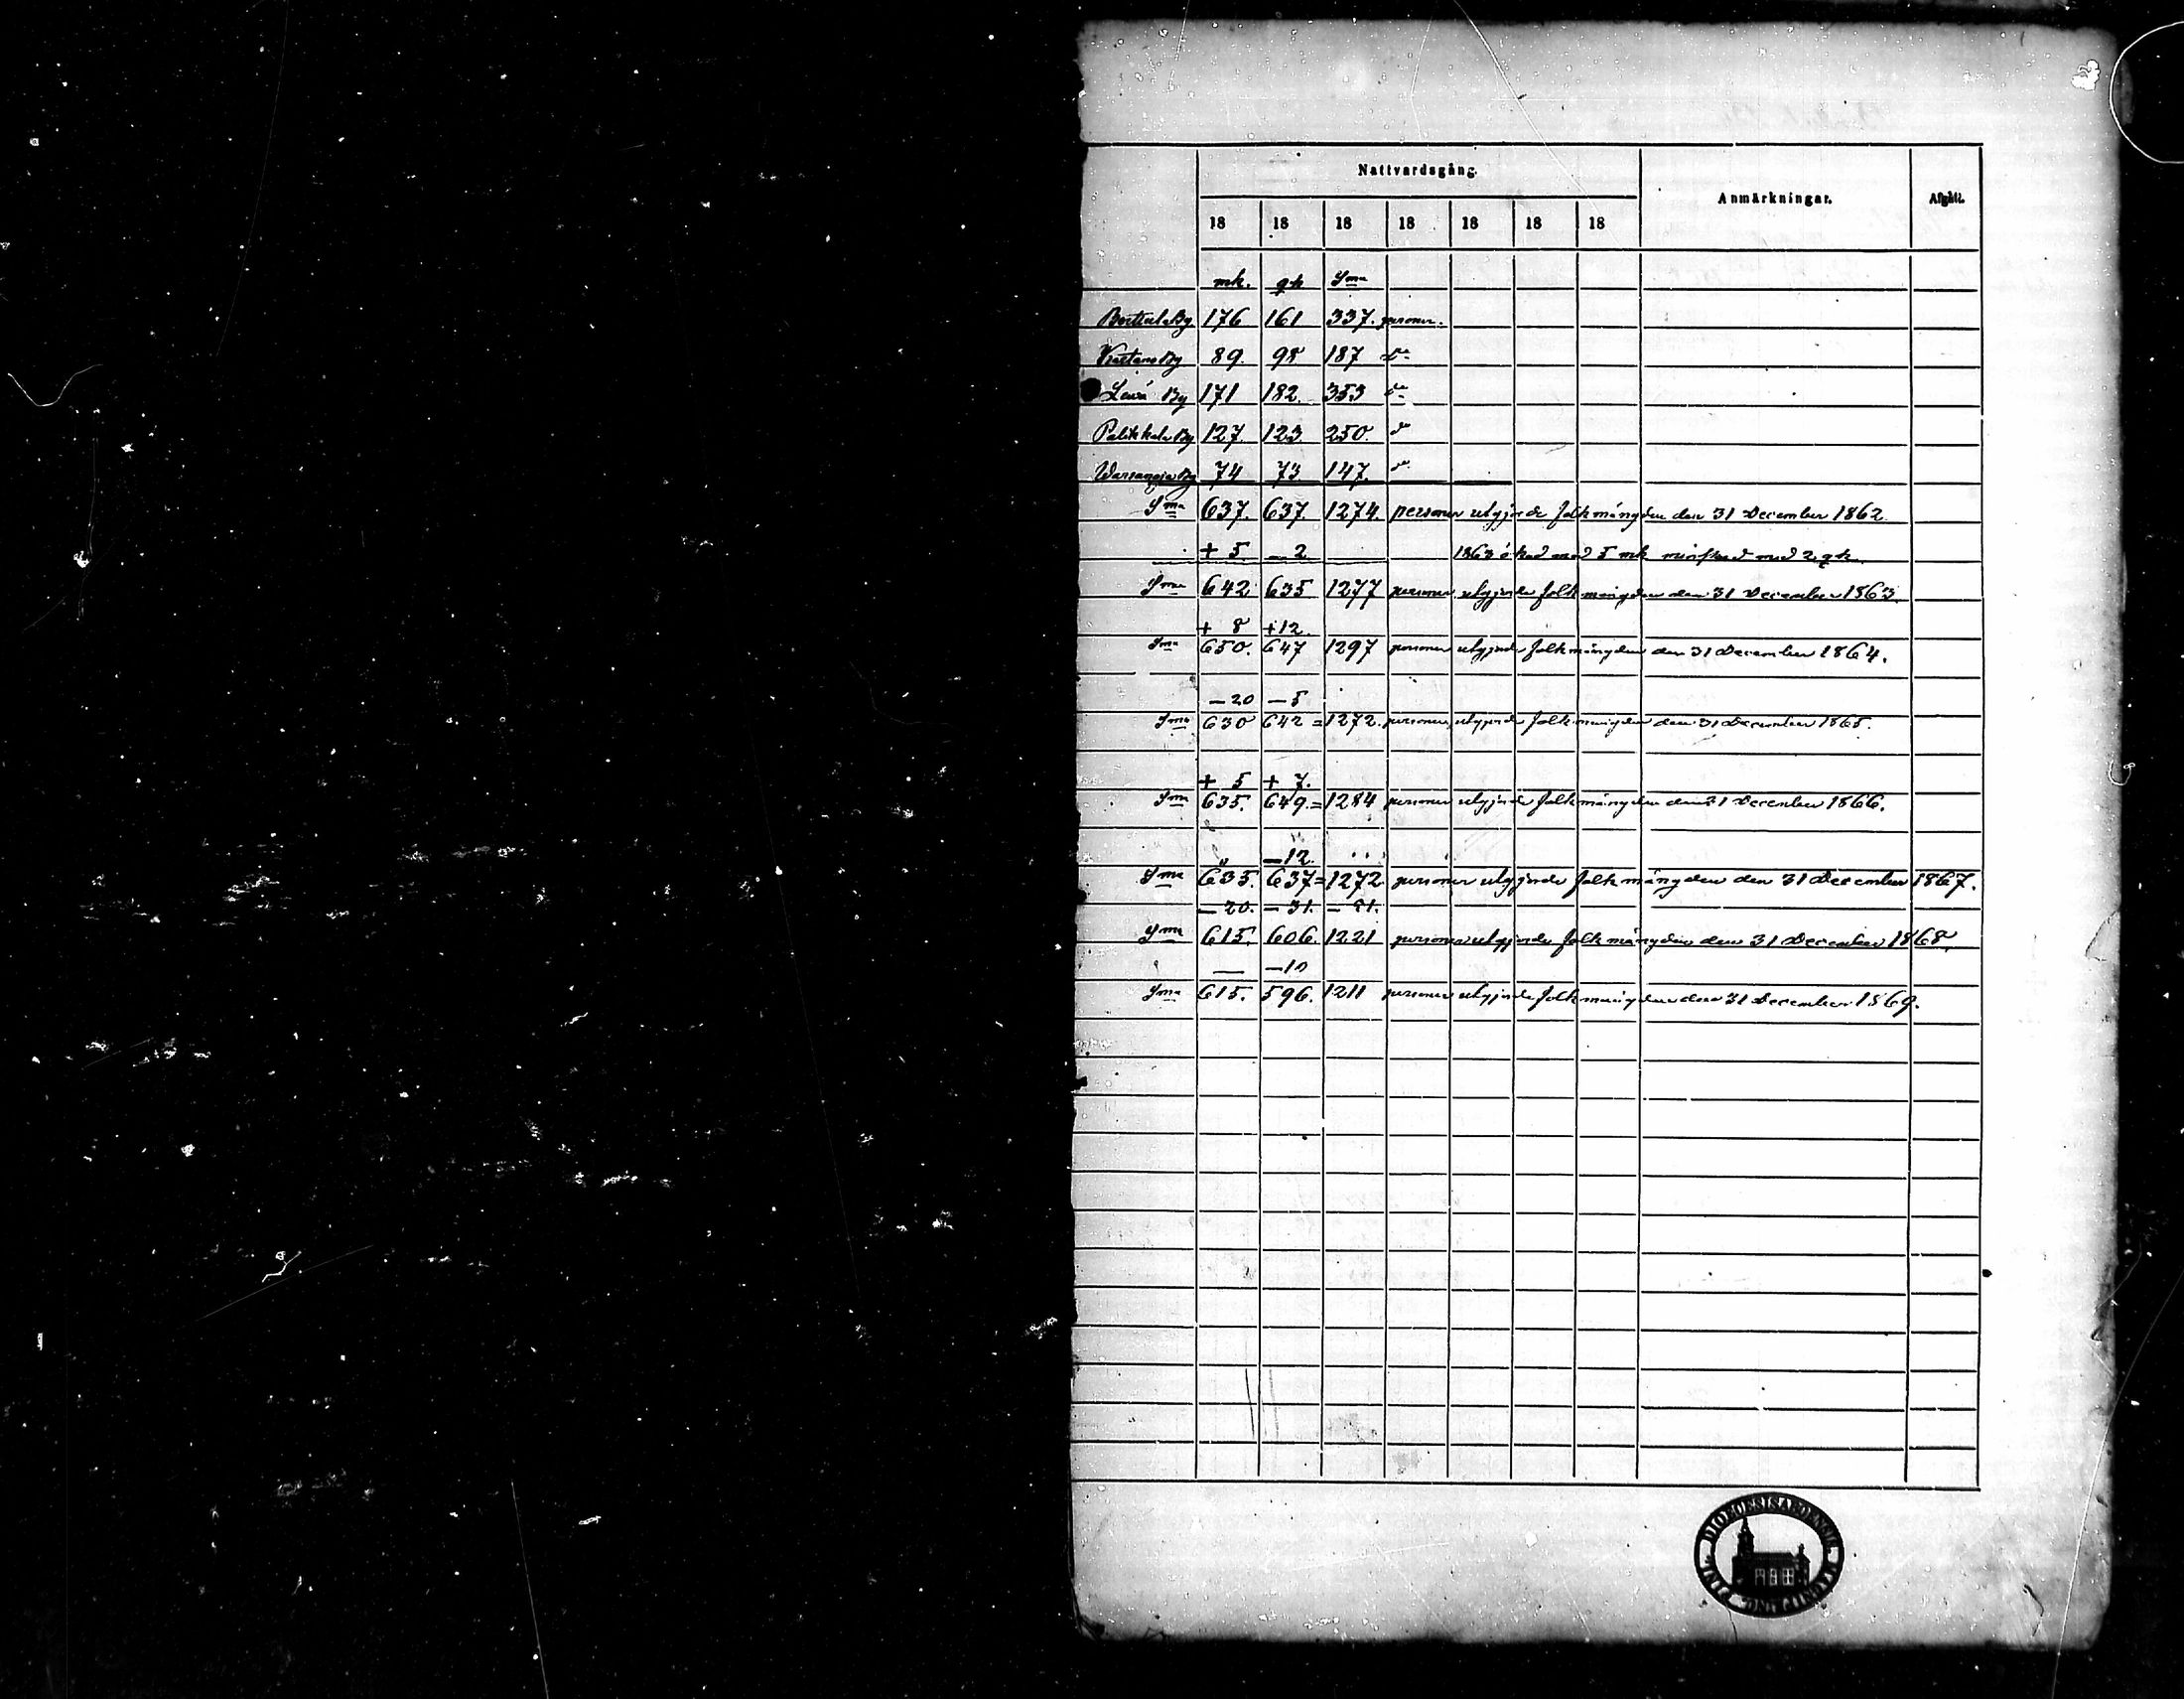 Nattvardsgång.
Anmärkningar.
Afgått.
18 18 18 18 18 18 18
mk. qk Sma
By 176 161 337. personer.
By 89. 98 187 do
By 171 182. 353 do
Palikkala By 127. 123. 250. do
By 74 73 147. do
Sma 637. 637. 1274. personer utgjorde folkmängden den 31 December 1862.
+ 5. - 2 1863 ökad med 5 mk minskad med 2 qk.
Sma 642 635 1277 personer utgjorde folkmängden den 31 December 1863.
+ 8 +12.
Sma 650. 647 1297 personer utgjorde folkmängden den 31 December 1864.
-20 -5
Sma 630 642 =1272. personer utgjorde folkmängden den 31 December 1865.
+ 5 + 7.
Sma 635. 649.=1284 personer utgjorde folkmängden den 31 December 1866.
" -12.
Sma 635. 637=1272 personer utgjorde folkmängden den 31 December 1867.
- 20. - 31. - 51.
Sma 615. 606. 1221 personer utgjorde folkmängden den 31 December 1868.
— -10
Sma 615. 596. 1211 personer utgjorde folkmängden den 31 December 1869.